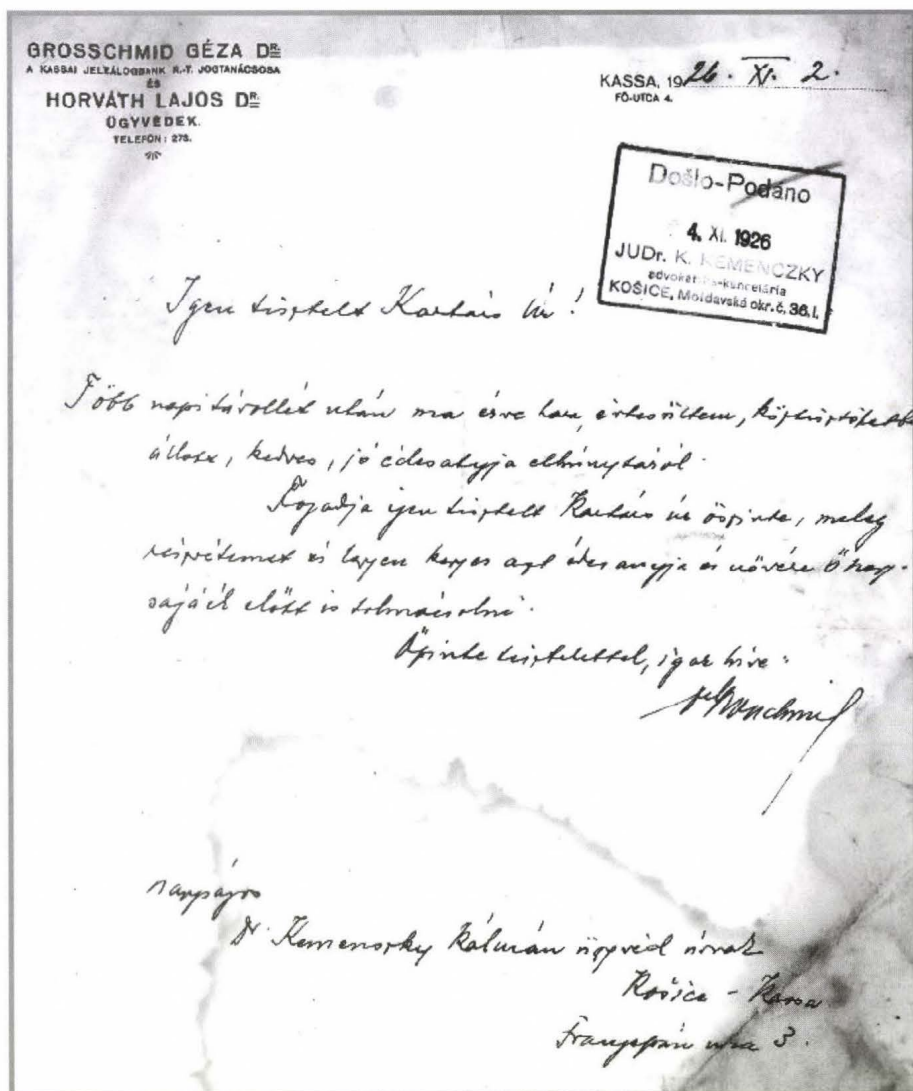 GROSSCHMID GÉZA DR.
A KASSAI JELZÁLOGBANK R.-T. JOGTANÁCSOSA
ÉS
HORVÁTH LAJOS DR.
ÜGYVÉDEK.
TELEFON: 275.
KASSA, 1926. XI. 2.
FŐ-UTCA 4.
Došlo-Podano
4. XI. 1926
JUDr. K. KEMENCZKY
advokatska-kancelária
KOŠICE, Moldavská okr. č. 36. I.
Igen tisztelt Kartárs Úr!
Több napi távollét után ma érve haza, értesültem, köztiszteletben
állott, kedves, jó édesatyja elhunytáról.
Fogadja igen tisztelt Kartárs úr őszinte, meleg
részvétemet és legyen kegyes azt édesanyja és nővére Őnagy-
ságáék előtt is tolmácsolni.
Őszinte tisztelettel, igaz híve:
nagyságos
Dr. Kemenczky Kálmán ügyvéd úrnak
Košice - Kassa
Frangepán utca 3.